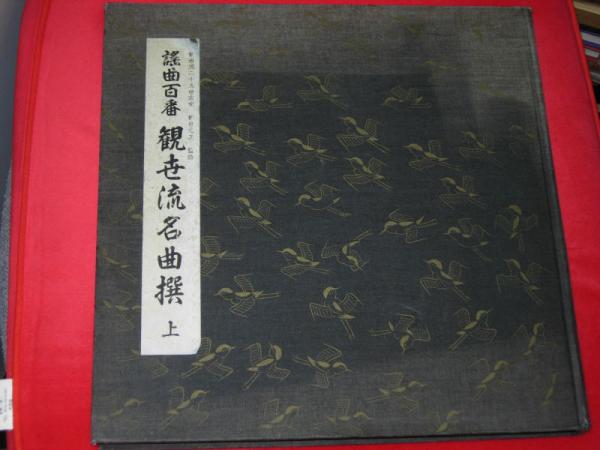 謡曲百番
観世流名曲撰
上